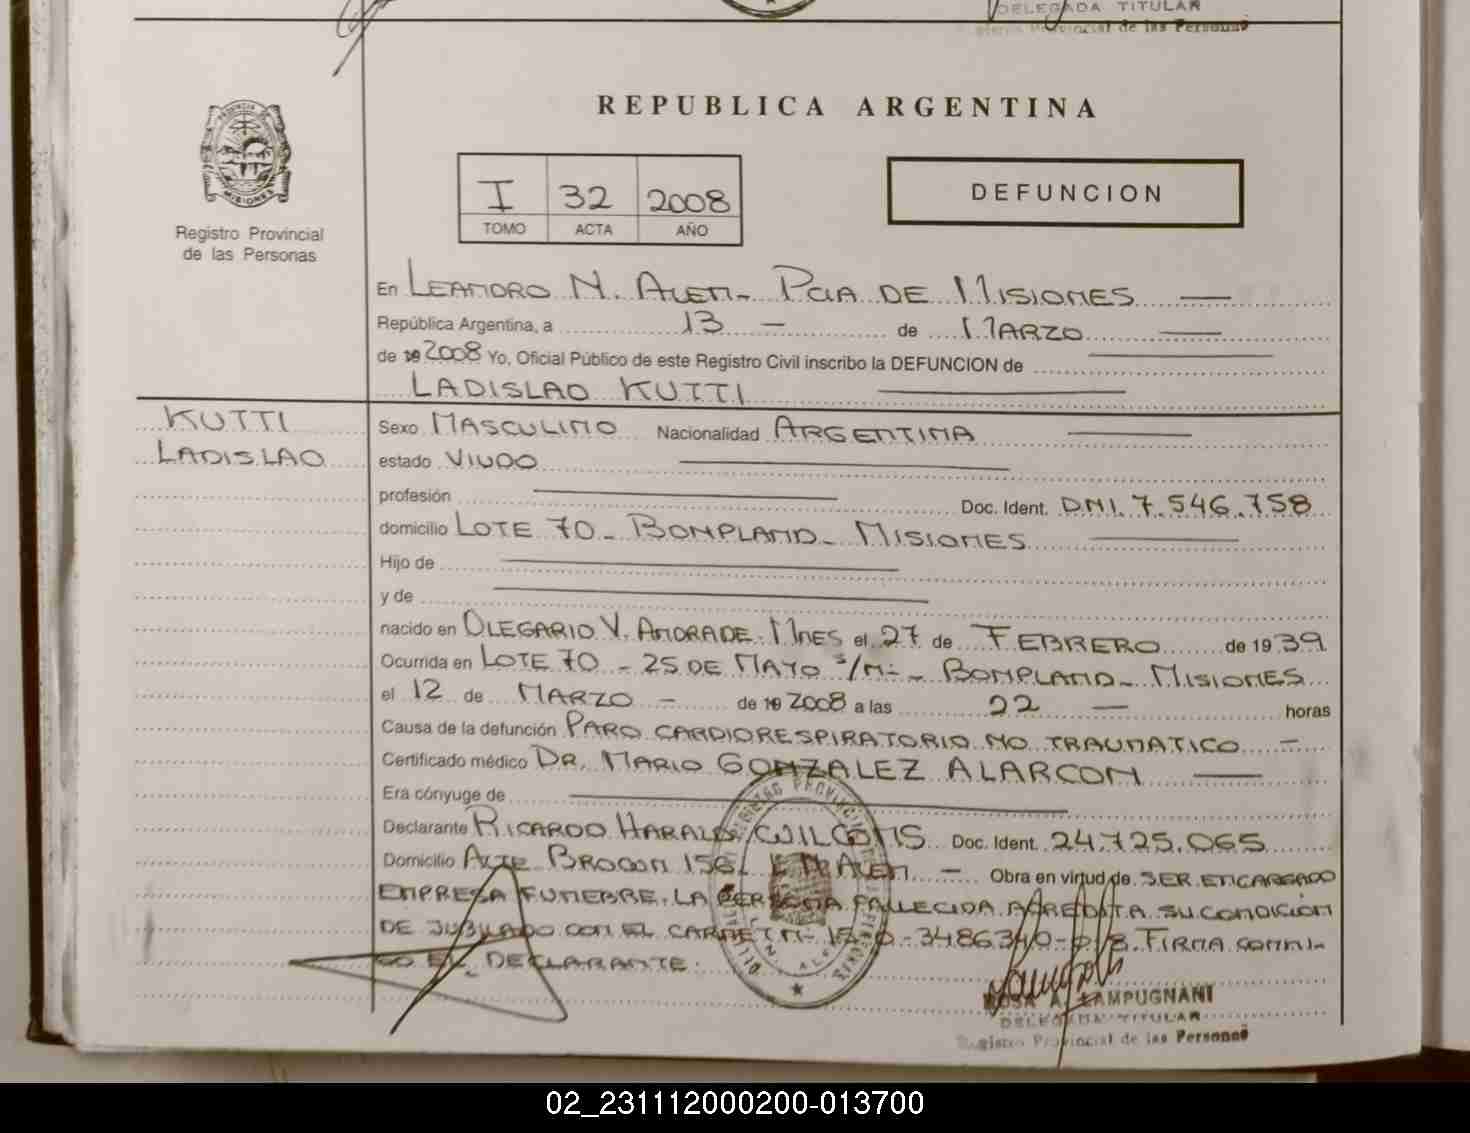 DELEGADA TITULAR
Registro Provincial de las Personas
REPUBLICA ARGENTINA
PROVINCIA
MISIONES
Registro Provincial
de las Personas
I 32 2008
TOMO ACTA AÑO
DEFUNCION
En LEANDRO N. ALEM - PCIA DE MISIONES
República Argentina, a 13 - de MARZO
de 19 2008 Yo, Oficial Público de este Registro Civil inscribo la DEFUNCION de
LADISLAO KUTTI
KUTTI
LADISLAO
Sexo MASCULINO Nacionalidad ARGENTINA
estado VIUDO
profesión Doc. Ident. DNI. 7.546.758
domicilio LOTE 70 - BONPLAND - MISIONES
Hijo de
y de
nacido en OLEGARIO V. ANDRADE. MNES el 27 de FEBRERO de 19 39
Ocurrida en LOTE 70 - 25 DE MAYO S/N - BONPLAND - MISIONES
el 12 de MARZO - de 19 2008 a las 22 - horas
Causa de la defunción PARO CARDIORESPIRATORIO NO TRAUMATICO -
Certificado médico DR. MARIO GONZALEZ ALARCON
Era cónyuge de
Declarante RICARDO HARALD Doc. Ident. 24.725.065
Domicilio ALTE BROWN 156 L N ALEM - Obra en virtud de SER ENCARGADO
EMPRESA FUNEBRE. LA PERSONA FALLECIDA ACREDITA SU CONDICIÓN
DE JUBILADO CON EL CARNET N- FIRMA CONMI-
GO EL DECLARANTE.
ROSA A. LAMPUGNANI
DELEGADA TITULAR
Registro Provincial de las Personas
02_231112000200-013700